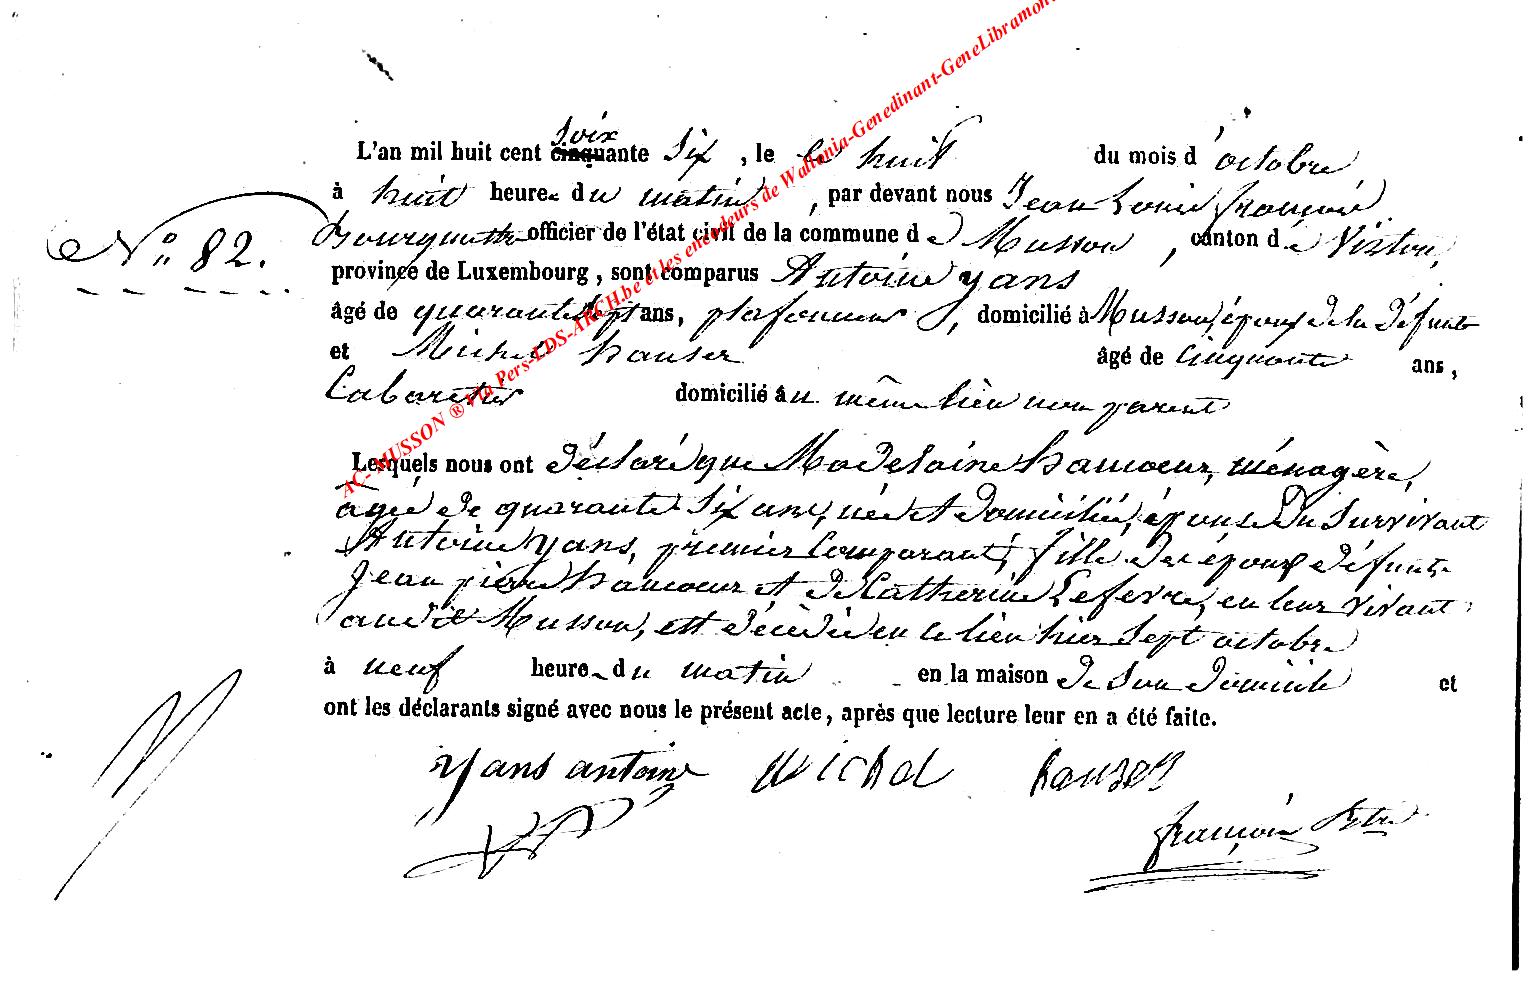 L'an mil huit cent cinquante soix six, le le huit du mois d'octobre
à huit heure du matin, par devant nous Jean Louis François
Bourguette officier de l'état civil de la commune de Musson, canton de Virton,
N° 82.
province de Luxembourg, sont comparus Antoine Yans
âgé de quarante sept ans, plafonneur, domicilié à Musson, époux de la défunte
et Michel Hauser âgé de cinquante ans,
Cabaretier domicilié au même lieu non parent
Lesquels nous ont déclaré que Madelaine Hamoeur, ménagère,
âgée de quarante six ans, née et domiciliée, épouse du survivant
Antoine Yans, premier comparant, fille des époux défunts
Jean pierre Hamoeur et de Catherine Lefevre, en leur vivant
audit Musson, est décédée en ce lieu hier sept octobre
à neuf heure du matin en la maison de son domicile et
ont les déclarants signé avec nous le présent acte, après que lecture leur en a été faite.
yans antoine Michel hauser
françois
AC-MUSSON ® via Pers-LDS-ARCH.be et les encodeurs de Wallonia-Genedinant-GeneLibramont